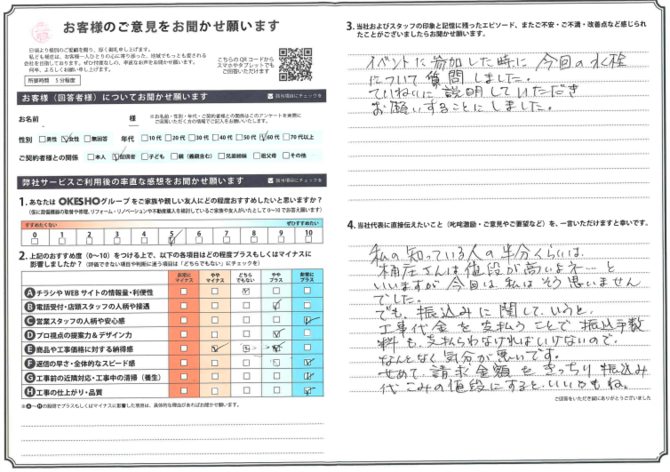 お客様のご意見をお聞かせ願います
こちらのQRコードから
スマホやタブレットでも
ご回答いただけます
所要時間 5分程度
お客様（回答者様）についてお聞かせ願います
お名前 様
性別 男性 女性 無回答 年代 10代 20代 30代 40代 50代 60代 70代以上
ご契約者様との関係 本人 配偶者 子ども 親（義親含む） 兄弟姉妹 祖父母 その他
弊社サービスご利用後の率直な感想をお聞かせ願います
1. あなたはOKESHOグループをご家族や親しい友人にどの程度おすすめしたいと思いますか？
すすめたくない ぜひすすめたい
0 1 2 3 4 5 6 7 8 9 10
2. 上記のおすすめ度（0〜10）をつける上で、以下の各項目はどの程度プラスもしくはマイナスに
影響しましたか？（評価できない項目や判断に迷う項目は「どちらでもない」にチェックを）
非常に
マイナス
やや
マイナス
どちら
でもない
やや
プラス
非常に
プラス
A チラシやWEBサイトの情報量・利便性
B 電話受付・店頭スタッフの人柄や接遇
C 営業スタッフの人柄や安心感
D プロ視点の提案力＆デザイン力
E 商品や工事価格に対する納得感
F 返信の早さ・全体的なスピード感
G 工事前の近隣対応・工事中の清掃（養生）
H 工事の仕上がり・品質
3. 当社およびスタッフの印象と記憶に残ったエピソード、またご不安・ご不満・改善点など感じられ
たことがございましたらお聞かせ願います。
イベントに参加した時に 今回の水栓
について 質問しました。
ていねいに 説明していただき
お願いすることにしました。
4. 当社代表に直接伝えたいこと（叱咤激励・ご意見やご要望など）を、一言いただけますと幸いです。
私の知っている人の半分くらいは、
桶庄さんは値段が高いよネ…と
いいますが 今回は、私はそう思いません
でした。
でも、振込みに関していうと、
工事代金を支払うことで振込手数
料も、支払らわなければいけないので、
なんとなく気分が悪いです。
せめて、請求金額をきっちり振込み
代こみの値段にすると、いいかもね。
ご回答をいただき誠にありがとうございました